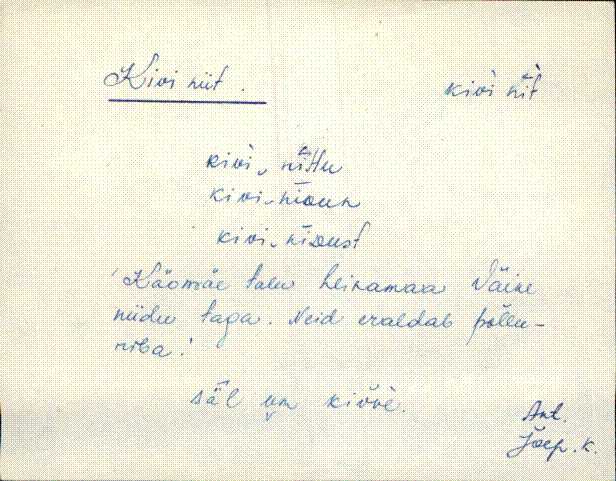 Kivi niit.
kivì nì̄t
kivì nìttu
kivi-nīdun
kivi-nīdust
Käomäe talu heinamaa Väike
niidu taga. Neid eraldab põllu-
riba.
säl um kivve.
Ant.
Jõep. k.